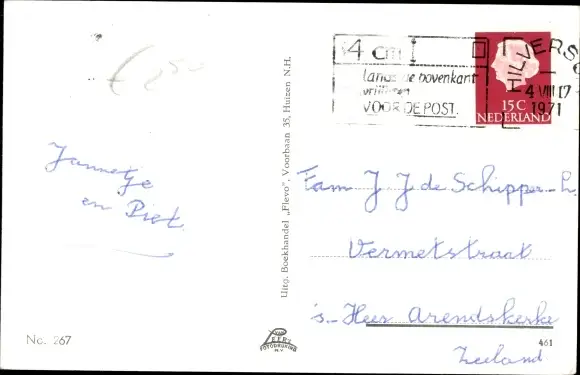 € 8 50
4 cm
langs de bovenkant
vrijlaten
VOOR DE POST.
HILVERS
4 VIII 17
1971
15 C
NEDERLAND
Jannetje
en Piet.
Uitg. Boekhandel „Flevo", Voorbaan 35, Huizen N.H.
Fam J J de Schipper-
Vermetstraat
's-Heer Arendskerke
Zeeland
No. 267
VAN
LEER'S
FOTODRUKIND
N.V.
461